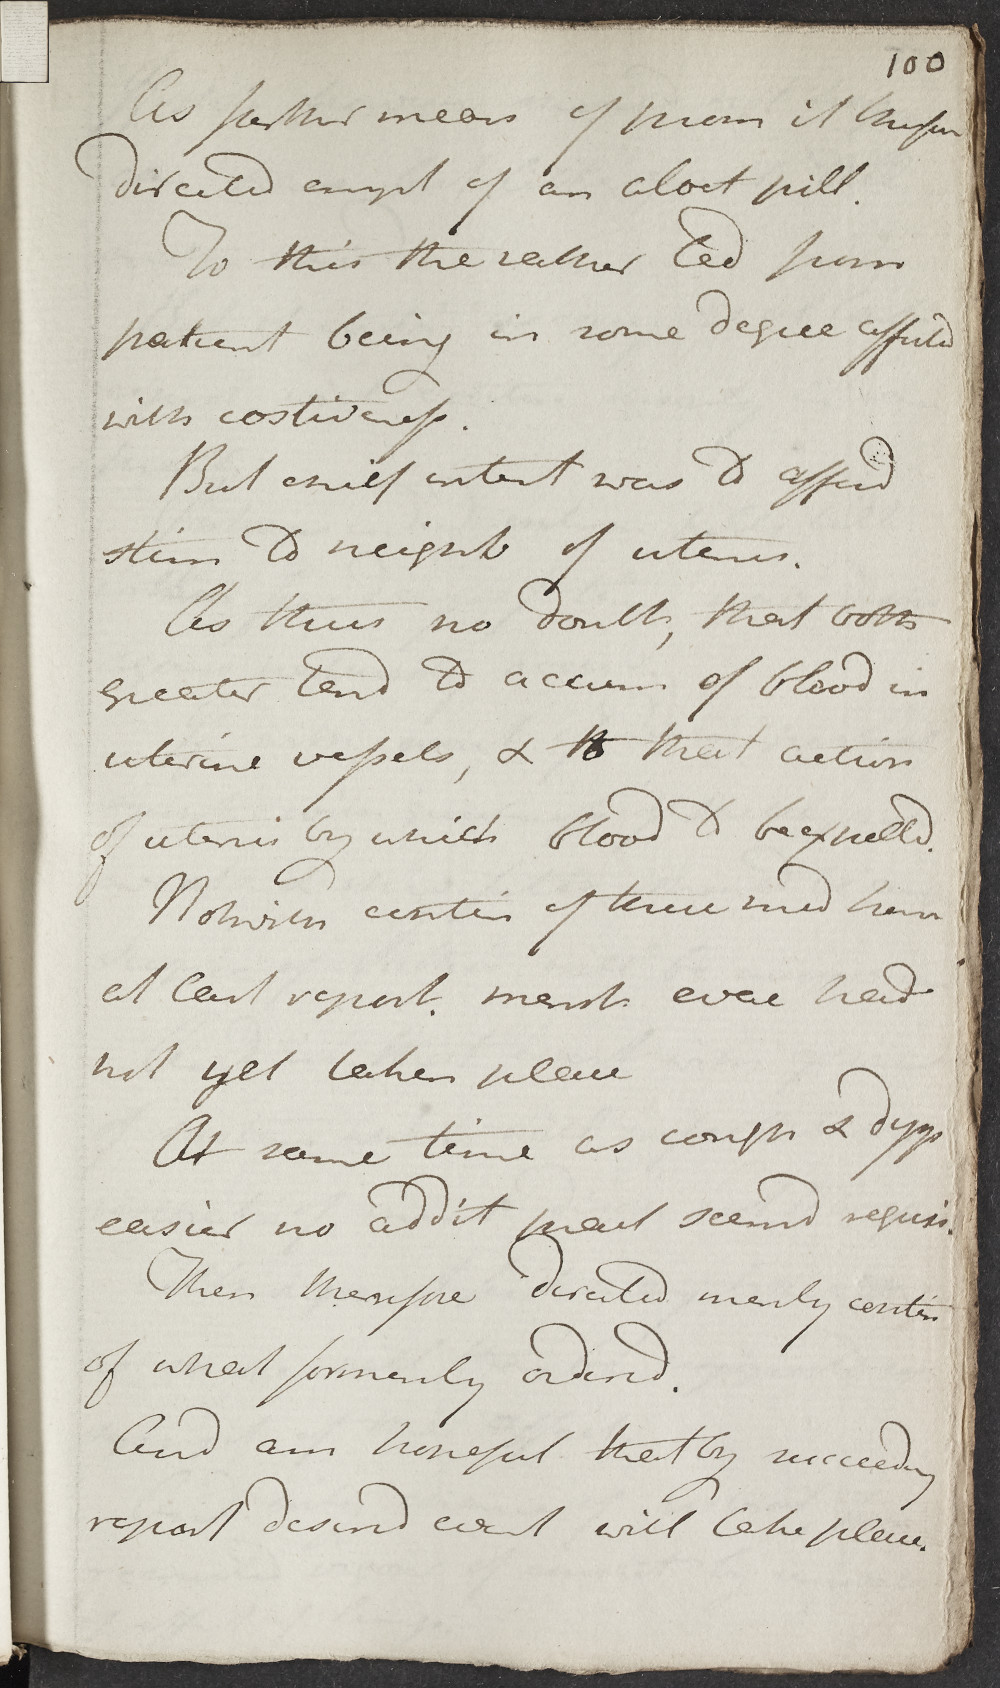 100
As farther means of prom it therefor
directed empl of an aloet pill.
To this the rather led from
patient being in some degree affected
with costiveness.
But chief intent was to afford
stim to neighb of uterus.
As thus no doubt, that both
greater tend to accum of blood in
uterine vessels, & to that action
of uterus by which blood to be expelled.
Notwith contin of these med
at last report. menst evac had
not yet taken place
At same time as cough & dysp
easier no addit pract seemd requis.
Then therefore directed merely contin
of what formerly orderd.
And am hopeful that by succeeding
report desired event will take place.